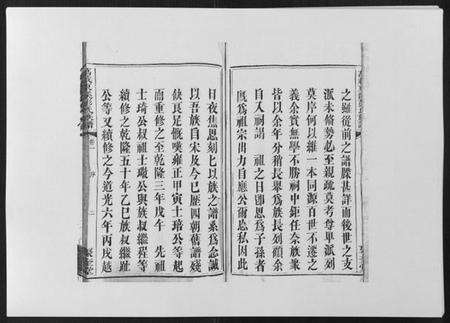 之雖從前之譜牒甚詳而後世之支
派未脩勢必至親疏莫考尊卑派列
莫序何以維一本同源百世不遷之
義余實無學不勝祠中鉅任奈族衆
皆以余年分稍長舉為族長列頭余
自入祠謁 祖之日即思為子孫者
既為祖宗出力自應公爾忘私因此
日夜焦思刻匕以族之譜系為念誠
以吾族自宋及今巳歷四朝舊譜殘
缺良足慨嘆雍正甲寅士琦公等起
而重修之至乾隆三年戊午 先祖
士琦公叔祖士璥公與族叔繼程等
續修之乾隆五十年乙巳族叔繼趾
公等又續修之今道光六年丙戌越
卷一